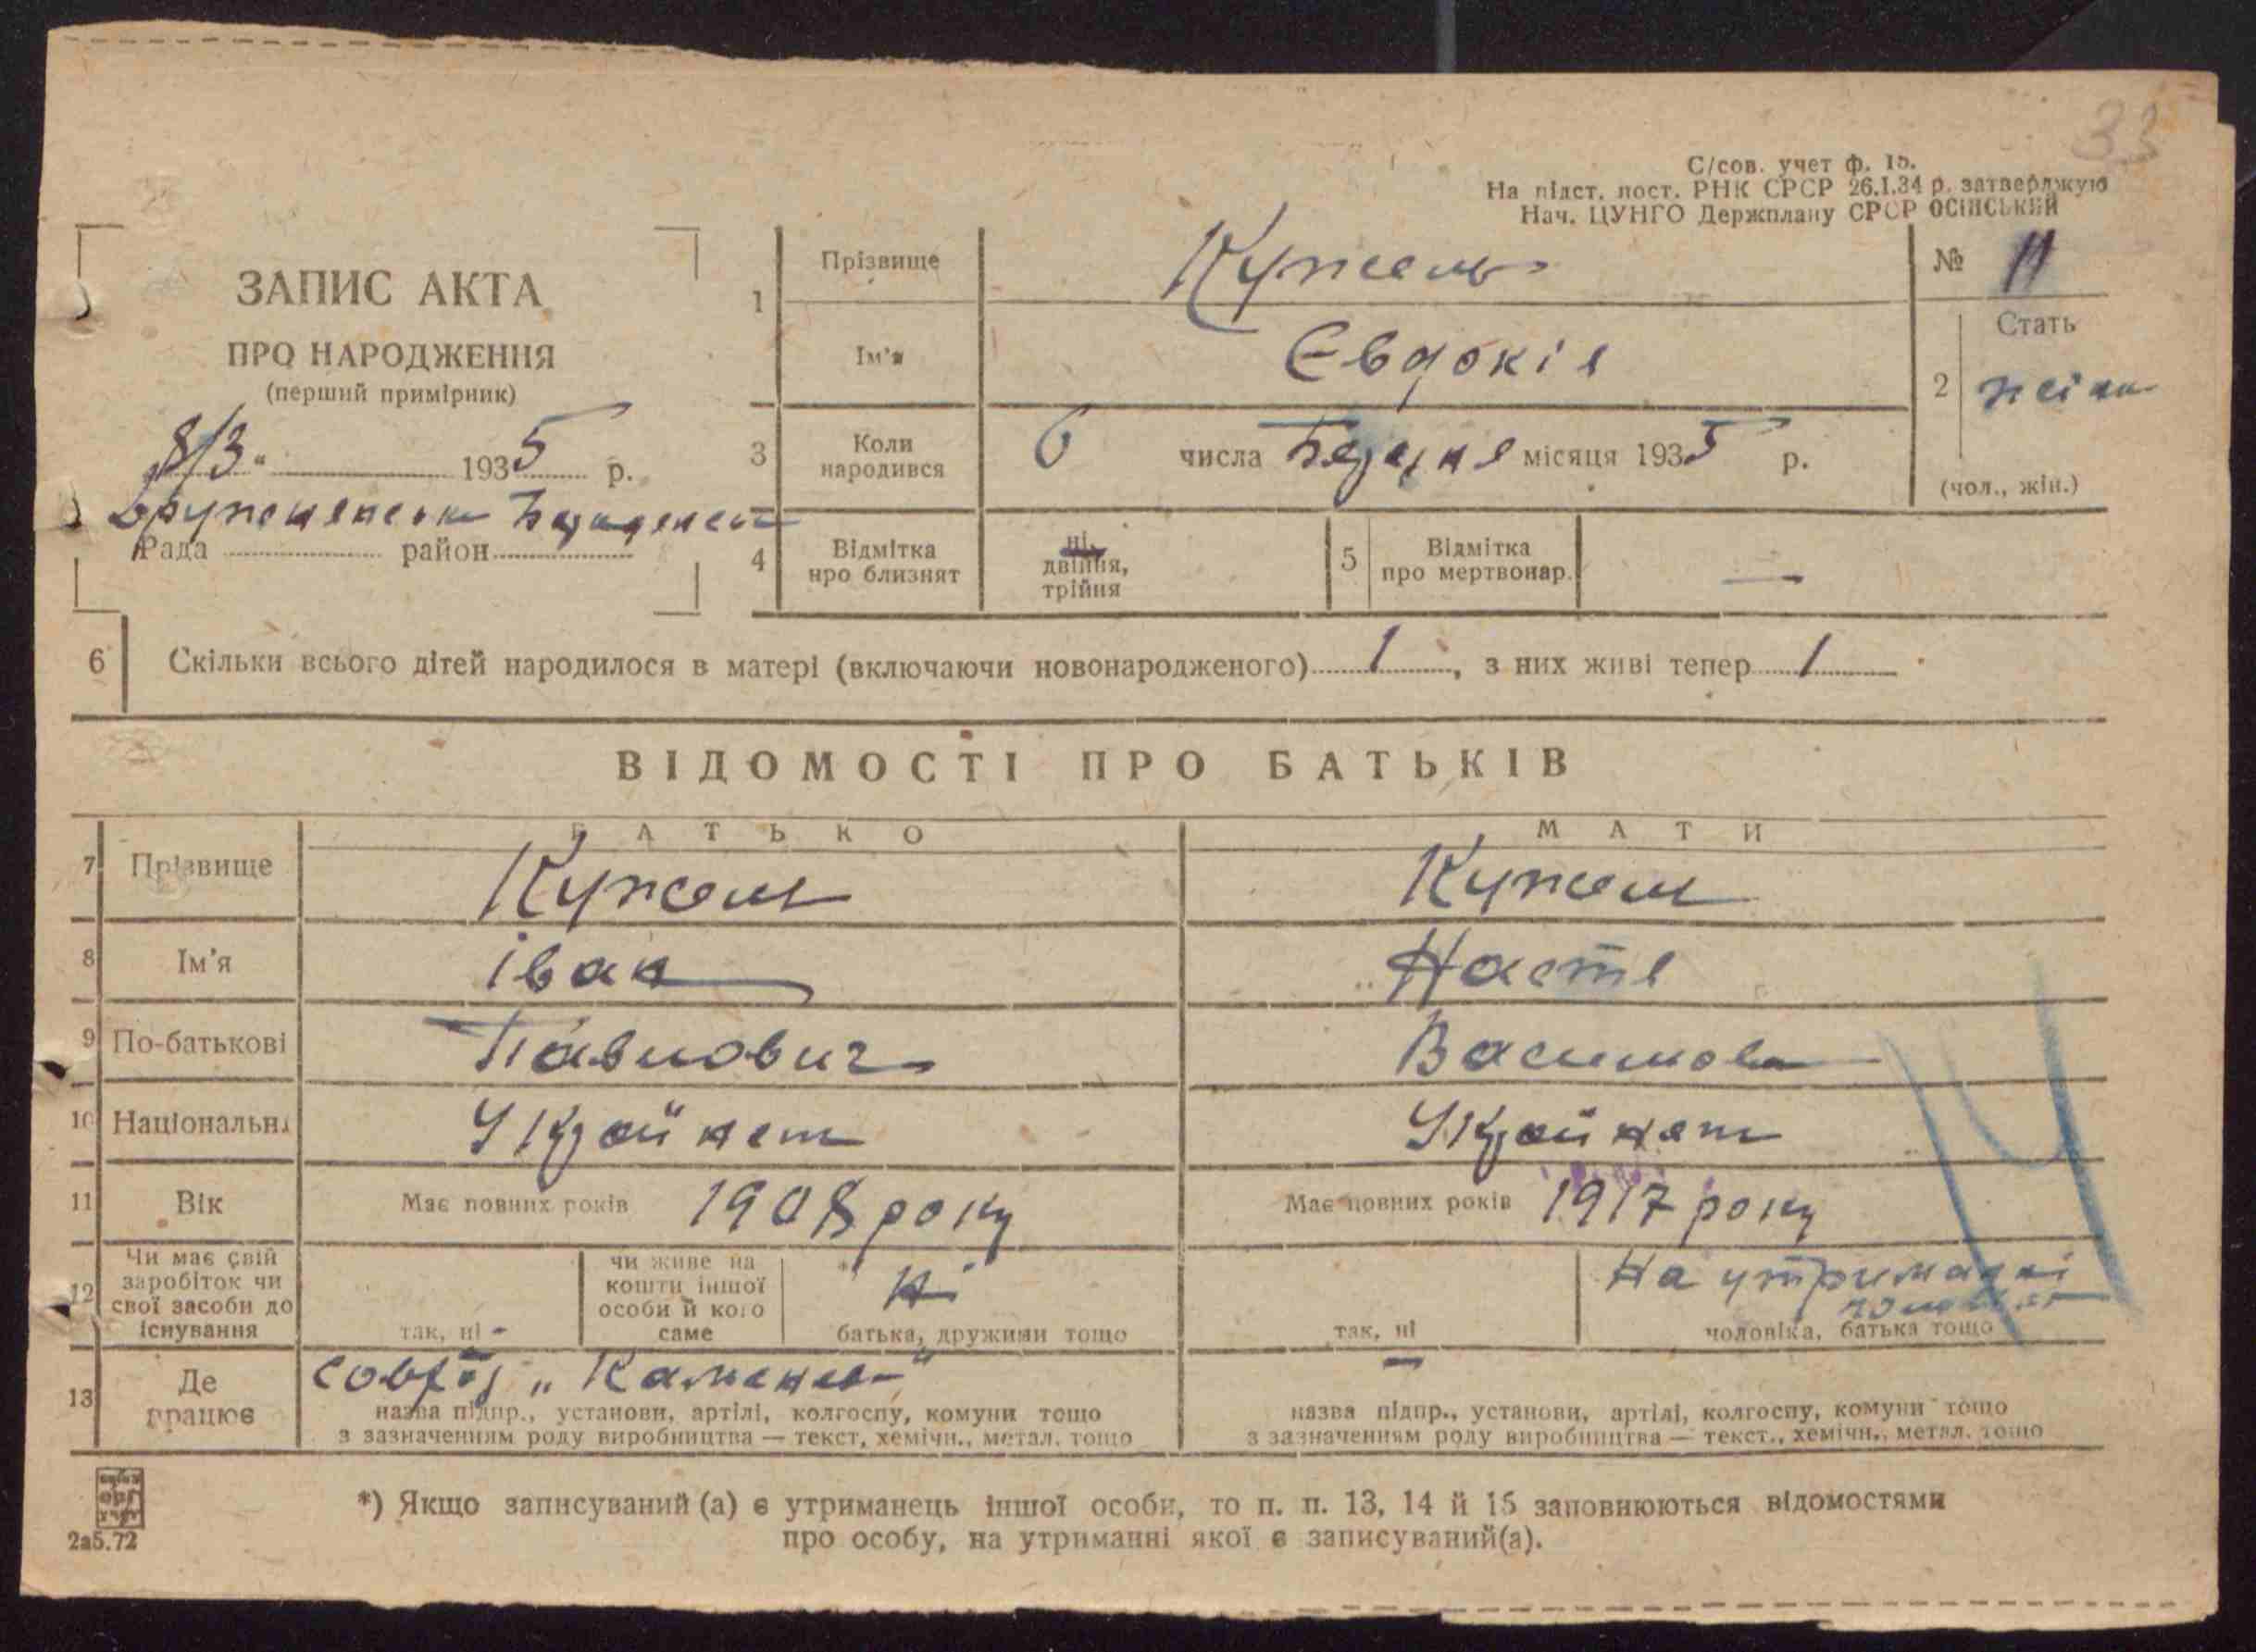 33
С/сов. учет ф. 15.
На підст. пост. РНК СРСР 26.I.34 р. затверджую
Нач. ЦУНГО Держплану СРСР ОСІНСЬКИЙ
ЗАПИС АКТА
ПРО НАРОДЖЕННЯ
(перший примірник)
8/3 1935 р.
Рада район
1 Прізвище Кужель
№ 11
Ім'я Євдокія
2 Стать жіноч
(чол., жін.)
3 Коли народився 6 числа Березня місяця 1935 р.
4 Відмітка про близнят ні, двійня, трійня
5 Відмітка про мертвонар. —
6 Скільки всього дітей народилося в матері (включаючи новонародженого) 1, з них живі тепер 1
ВІДОМОСТІ ПРО БАТЬКІВ
БАТЬКО МАТИ
7 Прізвище Кужель Кужель
8 Ім'я Іван Настя
9 По-батькові Павлович Василова
10 Національн. Українец Українец
11 Вік Має повних років 1908 року Має повних років 1917 року
12 Чи має свій заробіток чи свої засоби до існування
так, ні -
чи живе на кошти іншої особи й кого саме
ні
батька, дружини тощо
так, ні
На утриманні
чоловіка, батька тощо
13 Де працює
совхоз „
назва підпр., установи, артілі, колгоспу, комуни тощо
з зазначенням роду виробництва — текст, хемічн., метал. тощо
—
назва підпр., установи, артілі, колгоспу, комуни тощо
з зазначенням роду виробництва — текст., хемічн., метал. тощо
2а5.72
*) Якщо записуваний (а) є утриманець іншої особи, то п. п. 13, 14 й 15 заповнюються відомостями
про особу, на утриманні якої є записуваний(а).